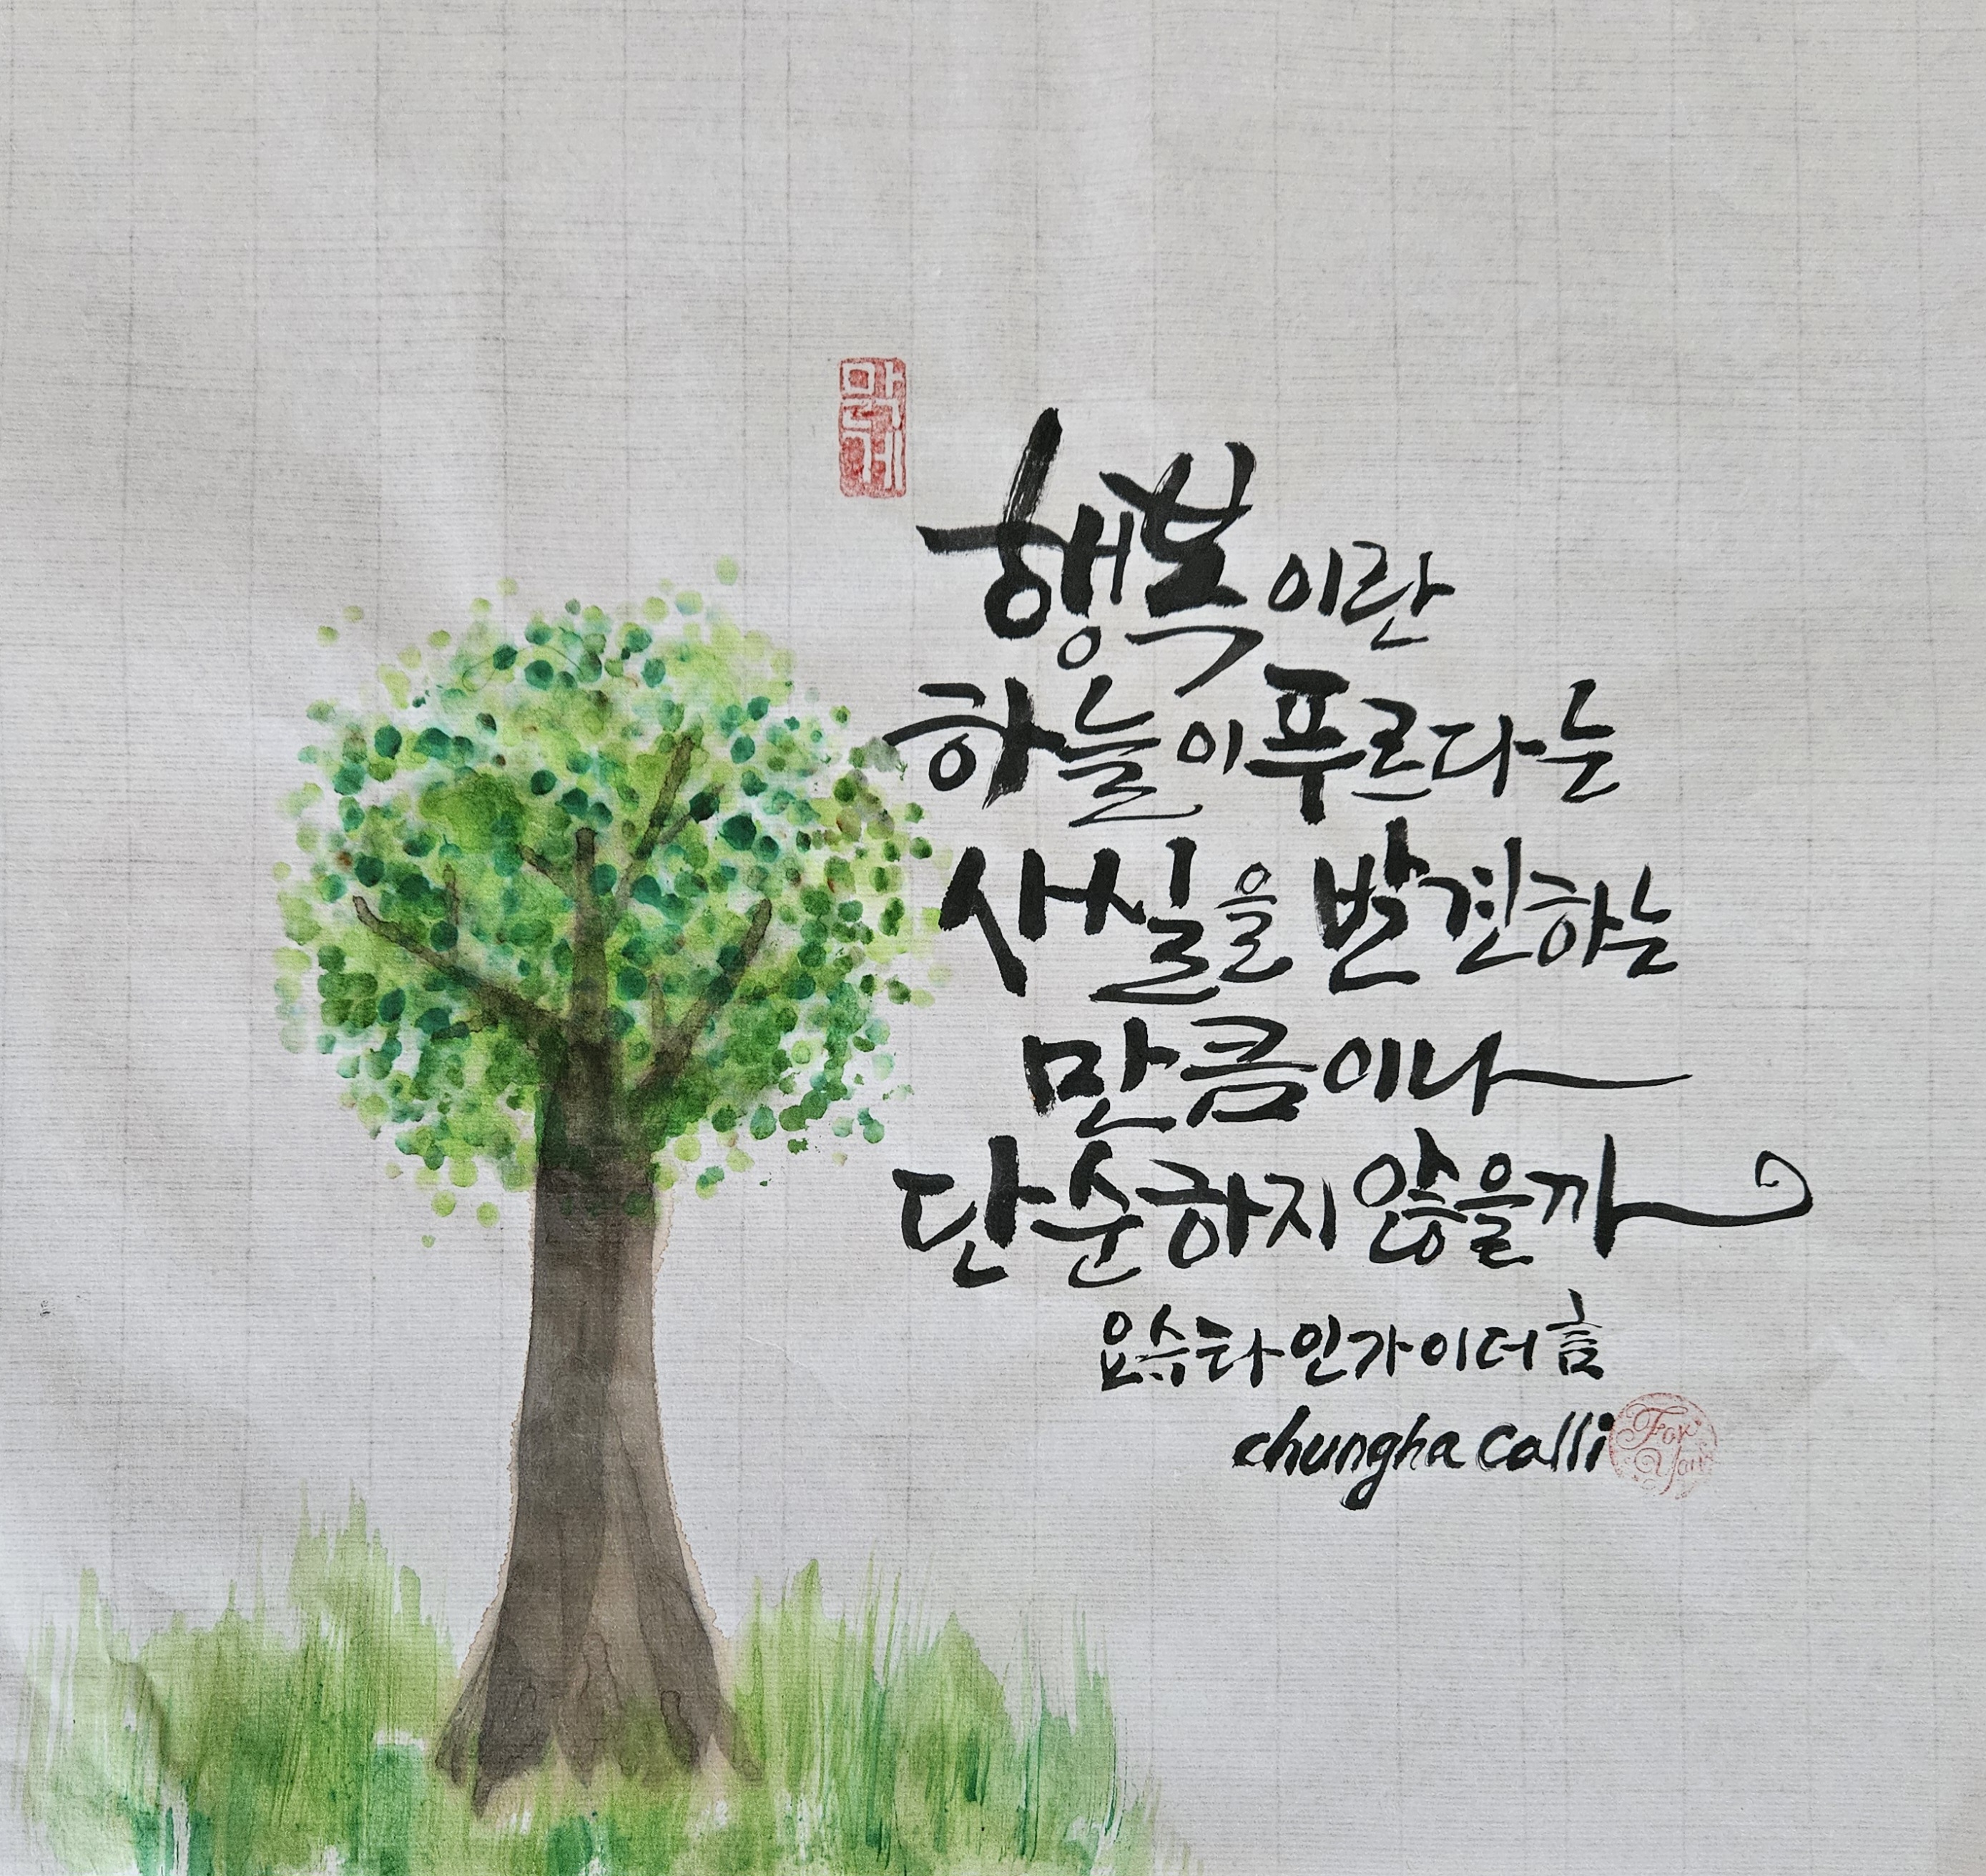 행복이란
하늘이 푸르다는
사실을 발견하는
만큼이나
단순하지 않을까
요슈타인가아더言
chungha calli
For
You